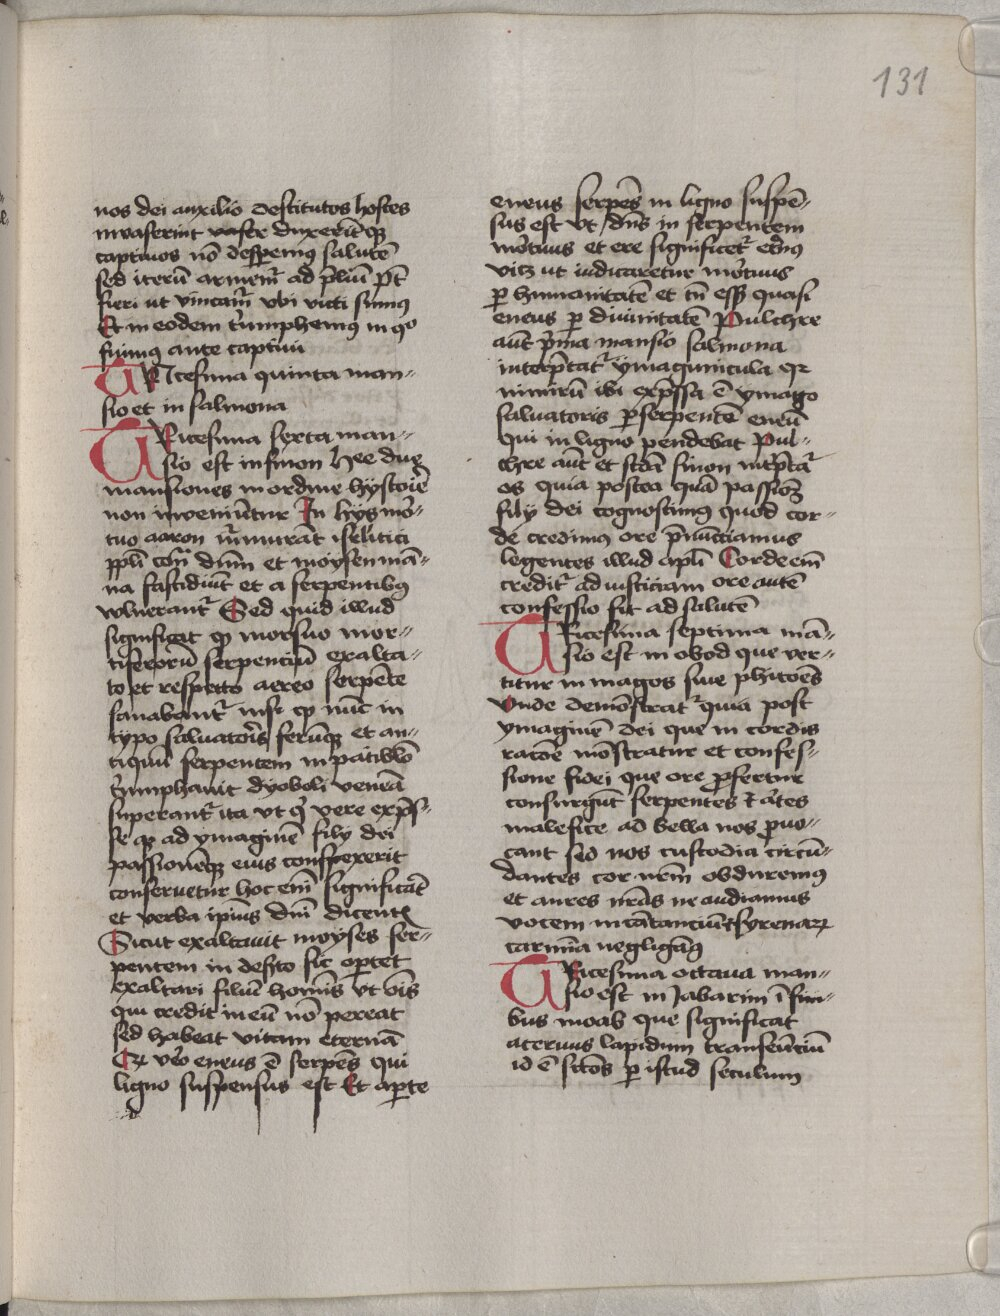 131
nos dei auxilio destitutos hostes
invaserint vaser duxerītqꝫ
captiuos nō desperemꝰ salutē
sed iterū armemr̄ ad p̄liū pōt
fieri ut vincam̄r vbi victi sumꝰ
Et in eodem tͥumphemꝰ in qͦ
fuimꝰ ante captiui
Uicesima quinta man-
sio et in salmona
Uicesima sexta man-
sio est in sinon hee due
mansiones in ordine hystorie
non inveniūtur In hys mor-
tuo aaron m̄murāt isrlitici
ppl̄i cont̄ dn̄m et moysen mā-
na fastidiūt et a serpentibꝰ
vulnerant᷑ Sed quid illud
significat qꝫ morsuo mor-
tiferorū serpentiū exalta-
to et respecto aereo serpēte
sanabant᷑ nisi qꝫ nūc in
typo saluatoris ferūtqꝫ et an-
tiquū serpentem in patibulo
tͥumphauit dyoboli venenā
superant᷑ ita vt qͥ vere exps̄-
se qꝫ ad ymaginē filij dei
passionēqꝫ eius conspexerit
conseruetur hoc em̄ significāt
et verba ip̄ius dn̄i dicentꝭ
Sicut exaltauit moyses ser-
pentem in deserto sic oꝑtet
exaltari filiū hom̄is vt oīs
qui credit in eū nō pereat
sed habeat vitam eternā
Qꝛ vero eneus ē serpēs qui
ligno suspensus est Et aꝑte
eneus serpēs in ligno suspē-
sus est vt dn̄s in serpentem
mortuus et ere significet᷑ etnꝰ
vicꝫ ut iudicaretur mortuus
ꝑ humanitatē et tn̄ esset quasi
eneus ꝑ diuinitatē Pulchre
aūt prima mansio salmona
interp̄tat᷑ ymaguncula qꝛ
nimirū ibi exp̄ssa ē ymago
saluatoris ꝑ serpentē eneū
qui in ligno pendebat Pul-
chre aūt et scd̄a sinon int̄p̄tat᷑
os quia postea quā passionꝫ
filij dei cognoscimꝰ quod cor-
de credimꝰ ore p̄nūcciamus
legentes illud apl̄i Corde em̄
credit᷑ ad iusticiam ore autē
confessio fit ad salutē
Uicesima septima mā-
sio est in oboð que ver-
titur in magos siue phitoēs
Unde demōstrat᷑ quia post
ymaginē dei que in cordis
ratōe mōstratur et confes-
sione fidei que ore ꝓfertur
consurgūt serpentes et artes
malefice ad bella nos ꝓuo-
cant sed nos custodia circū-
dantes cor nr̄m obduremꝰ
et aures nr̄as ne audiamus
vocem incātanciū et syrenaꝝ
carmīa negligāꝰ
Uicesima octaua man-
sio est in Jabarim ī fini-
bus moab que significat
aceruus lapidum transeūciū
id ē sctōs ꝑ istud seculum